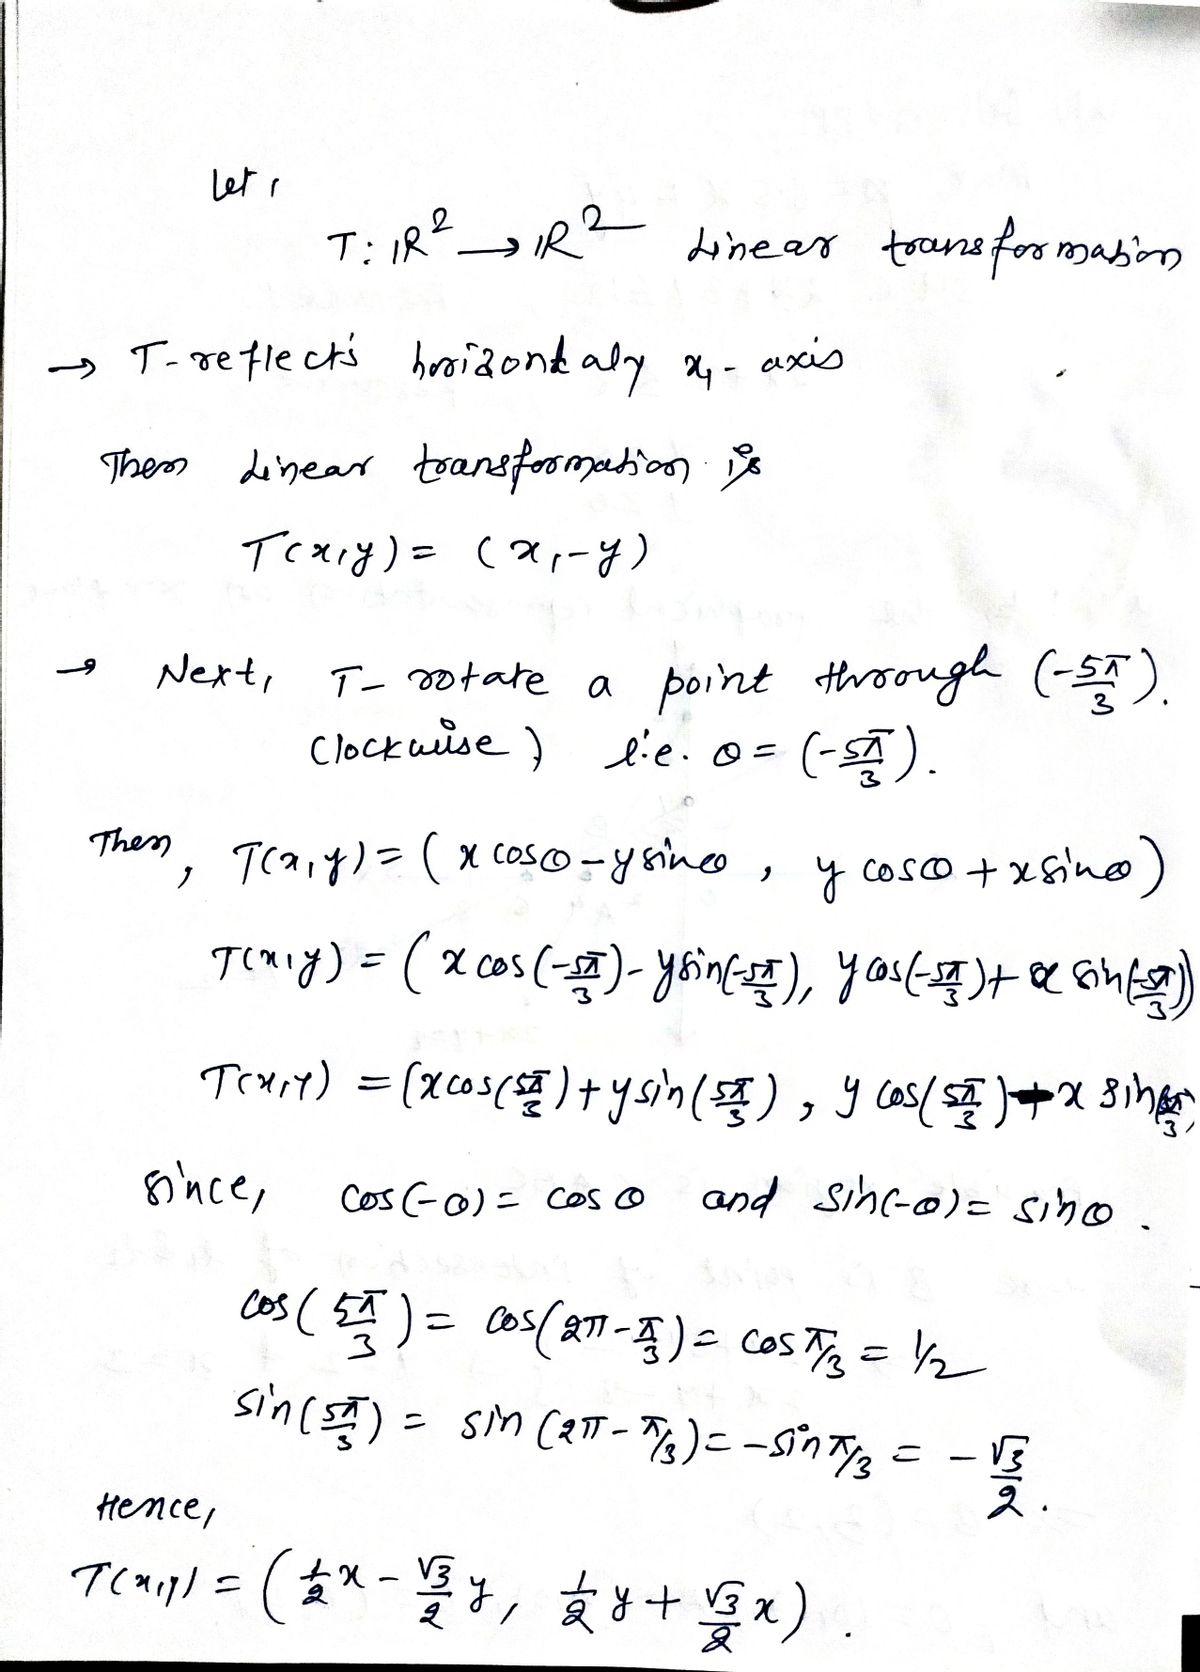 Let,
T: ℝ² → ℝ² Linear transformation
→ T-reflects horizontaly x₁-axis
Then Linear transformation is
T(x,y) = (x,-y)
→ Next, T- rotate a point through (-5π/3).
Clockwise) i.e. θ = (-5π/3).
Then, T(x,y) = (x cosθ - y sinθ, y cosθ + x sinθ)
T(x,y) = (x cos(-5π/3) - y sin(-5π/3), y cos(-5π/3) + x sin(-5π/3))
T(x,y) = (x cos(5π/3) + y sin(5π/3), y cos(5π/3) - x sin(5π/3)
Since, cos(-θ) = cosθ and sin(-θ) = sinθ.
cos(5π/3) = cos(2π-π/3) = cos π/3 = 1/2
sin(5π/3) = sin(2π-π/3) = -sin π/3 = -√3/2.
Hence,
T(x,y) = (1/2 x - √3/2 y, 1/2 y + √3/2 x).